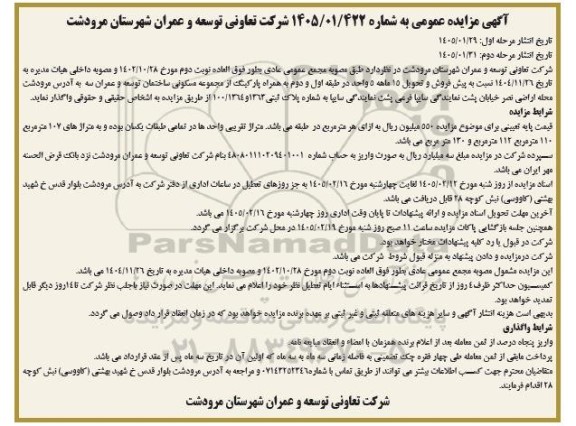 آگهی مزایده عمومی به شماره ۱۴۰۵/۰۱/۴۲۲ شرکت تعاونی توسعه و عمران شهرستان مرودشت
تاریخ انتشار مرحله اول: ۱۴۰۵/۰۱/۲۹
تاریخ انتشار مرحله دوم: ۱۴۰۵/۰۱/۳۱
شرکت تعاونی توسعه و عمران شهرستان مرودشت در نظردارد طبق مصوبه مجمع عمومی عادی بطور فوق العاده نوبت دوم مورخ ۱۴۰۲/۱۰/۲۸ و مصوبه داخلی هیات مدیره به
تاریخ ۱۴۰۴/۱۱/۲۶ نسبت به پیش فروش و تحویل ۱۵ ماهه ۵ واحد در طبقه اول و دوم به همراه پارکینگ از مجموعه مسکونی ساختمان توسعه و عمران سه به آدرس مرودشت
محله اراضی نصر خیابان پشت نمایندگی سایپا فرعی پشت نمایندگی سایپا به شماره پلاک ثبتی ۱۳۶۳و۱۰۰/۱۳۶۴ از طریق مزایده به اشخاص حقیقی و حقوقی واگذار نماید.
شرایط مزایده
قیمت پایه تعیینی برای موضوع مزایده ۵۵۰ میلیون ریال به ازای هر مترمربع در طبقه می باشد. متراژ تقریبی واحد ها در تمامی طبقات یکسان بوده و به متراژ های ۱۰۷ مترمربع
۱۱۰ مترمربع ۱۱۲ مترمربع و ۱۳۰ متر مربع می باشد.
سپرده شرکت در مزایده مبلغ سه میلیارد ریال به صورت واریز به حساب شماره ۴۸۰۸۰۱۱۱۰۲۰۹۴۰۱۰۰۱ بنام شرکت تعاونی توسعه و عمران مرودشت نزد بانک قرض الحسنه
مهر ایران می باشد.
اسناد مزایده از روز شنبه مورخ ۱۴۰۵/۰۲/۱۲ لغایت چهارشنبه مورخ ۱۴۰۵/۰۲/۱۶ به جز روزهای تعطیل در ساعات اداری از دفتر شرکت به آدرس مرودشت بلوار قدس خ شهید
بهشتی (کاووسی) نبش کوچه ۲۸ قابل دریافت می باشد.
آخرین مهلت تحویل اسناد مزایده و ارائه پیشنهادات تا پایان وقت اداری روز چهارشنبه مورخ ۱۴۰۵/۰۲/۱۶ می باشد.
همچنین جلسه بازگشایی پاکات مزایده ساعت ۱۱ صبح روز شنبه مورخ ۱۴۰۵/۰۲/۱۹ در محل شرکت برگزار می گردد.
شرکت در قبول یا رد کلیه پیشنهادات مختار خواهد بود.
شرکت درمزایده و دادن پیشنهاد به منزله قبول شروط شرکت می باشد.
این مزایده مشمول مصوبه مجمع عمومی عادی بطور فوق العاده نوبت دوم مورخ ۱۴۰۲/۱۰/۲۸ و مصوبه داخلی هیات مدیره به تاریخ ۱۴۰۴/۱۱/۲۶ می باشد.
کمیسیون حداکثر ظرف۴ روز از تاریخ قرائت پیشنهادها به استثناء ایام تعطیل نظر خود را اعلام می نماید. این مهلت در صورت نیاز با جلب نظر شرکت تا۱۴روز دیگر قابل
تمدید خواهد بود.
بدیهی است هزینه انتشار آگهی و سایر هزینه های متعلقه ثبتی و غیر ثبتی بر عهده برنده مزایده خواهد بود که در زمان انعقاد قرار داد وصول می گردد.
شرایط واگذاری
واریز پنجاه درصد از ثمن معامله بعد از اعلام برنده همزمان با امضاء و انعقاد مبایعه نامه.
پرداخت مابقی از ثمن معامله طی چهار فقره چک تضمینی به فاصله زمانی سه ماه به سه ماه که اولین آن در تاریخ سه ماه پس از عقد قرارداد می باشد.
متقاضیان محترم جهت کسب اطلاعات بیشتر می توانند از طریق تماس با شماره۰۷۱۴۳۲۵۲۳۴۶ و مراجعه به آدرس مرودشت بلوار قدس خ شهید بهشتی (کاووسی) نبش کوچه
۲۸ اقدام فرمایند.
شرکت تعاونی توسعه و عمران شهرستان مرودشت
ParsNamadData
پایگاه اطلاع رسانی مناقصه و مزایده